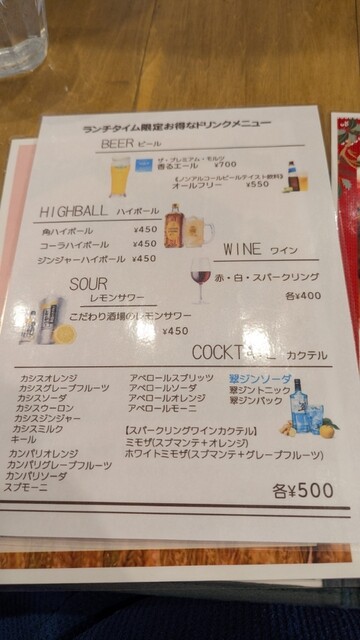 ランチタイム限定お得なドリンクメニュー
BEER ビール
ザ・プレミアム・モルツ
香るエール ¥700
《ノンアルコールビールテイスト飲料》
オールフリー ¥550
HIGHBALL ハイボール
角ハイボール ¥450
コーラハイボール ¥450
ジンジャーハイボール ¥450
WINE ワイン
赤・白・スパークリング
各¥400
SOUR
レモンサワー
こだわり酒場のレモンサワー
¥450
COCKTAIL カクテル
カシスオレンジ
カシスグレープフルーツ
カシスソーダ
カシスウーロン
カシスジンジャー
カシスミルク
キール
カンパリオレンジ
カンパリグレープフルーツ
カンパリソーダ
スプモーニ
アペロールスプリッツ
アペロールソーダ
アペロールオレンジ
アペロールモーニ
【スパークリングワインカクテル】
ミモザ(スプマンテ+オレンジ)
ホワイトミモザ(スプマンテ+グレープフルーツ)
翠ジンソーダ
翠ジントニック
翠ジンバック
各¥500